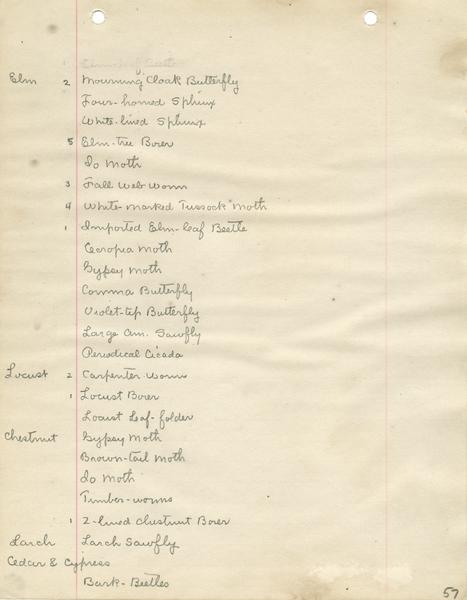 Elm 2 Mourning Cloak Butterfly
Four-horned Sphinx
White-lined Sphinx
5 Elm-tree Borer
Io Moth
3 Fall Web Worm
4 White-marked Tussock Moth
1 Imported Elm-leaf Beetle
Cecropia Moth
Gypsy Moth
Comma Butterfly
Violet-tip Butterfly
Large Am. Sawfly
Periodical Cicada
Locust 2 Carpenter worm
1 Locust Borer
Locust Leaf-folder
Chestnut Gypsy Moth
Brown-tail Moth
Io Moth
Timber-worms
1 2-lined Chestnut Borer
Larch Larch Sawfly
Cedar & Cypress
Bark-Beetles
57